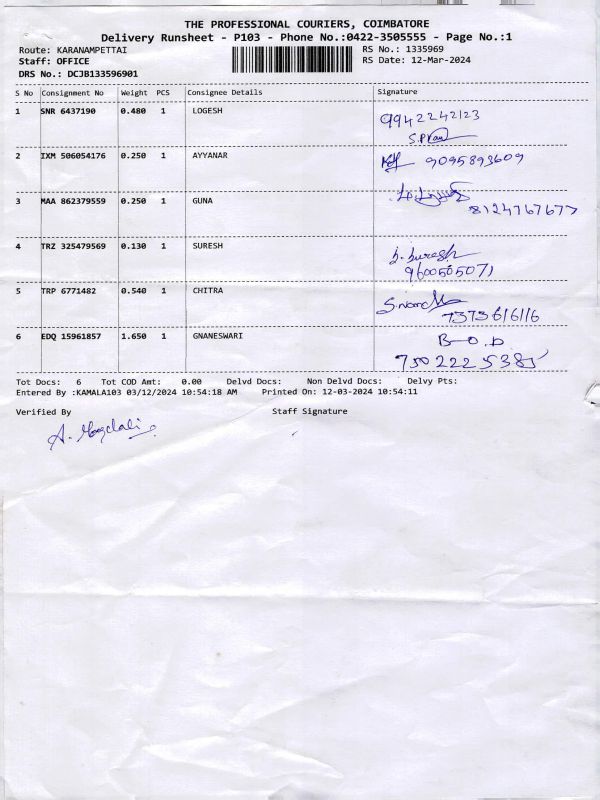 THE PROFESSIONAL COURIERS, COIMBATORE
Delivery Runsheet - P103 - Phone No.:0422-3505555 - Page No.:1
Route: KARANAMPETTAI RS No.: 1335969
Staff: OFFICE RS Date: 12-Mar-2024
DRS No.: DCJB133596901
S No Consignment No Weight PCS Consignee Details Signature
1 SNR 6437190 0.480 1 LOGESH 9942242123
2 IXM 506054176 0.250 1 AYYANAR 9095893609
3 MAA 862379559 0.250 1 GUNA 8124767677
4 TRZ 325479569 0.130 1 SURESH
9600505071
5 TRP 6771482 0.540 1 CHITRA
7373616116
6 EDQ 15961857 1.650 1 GNANESWARI B-O.D
7502225385
Tot Docs: 6 Tot COD Amt: 0.00 Delvd Docs: Non Delvd Docs: Delvy Pts:
Entered By :KAMALA103 03/12/2024 10:54:18 AM Printed On: 12-03-2024 10:54:11
Verified By Staff Signature